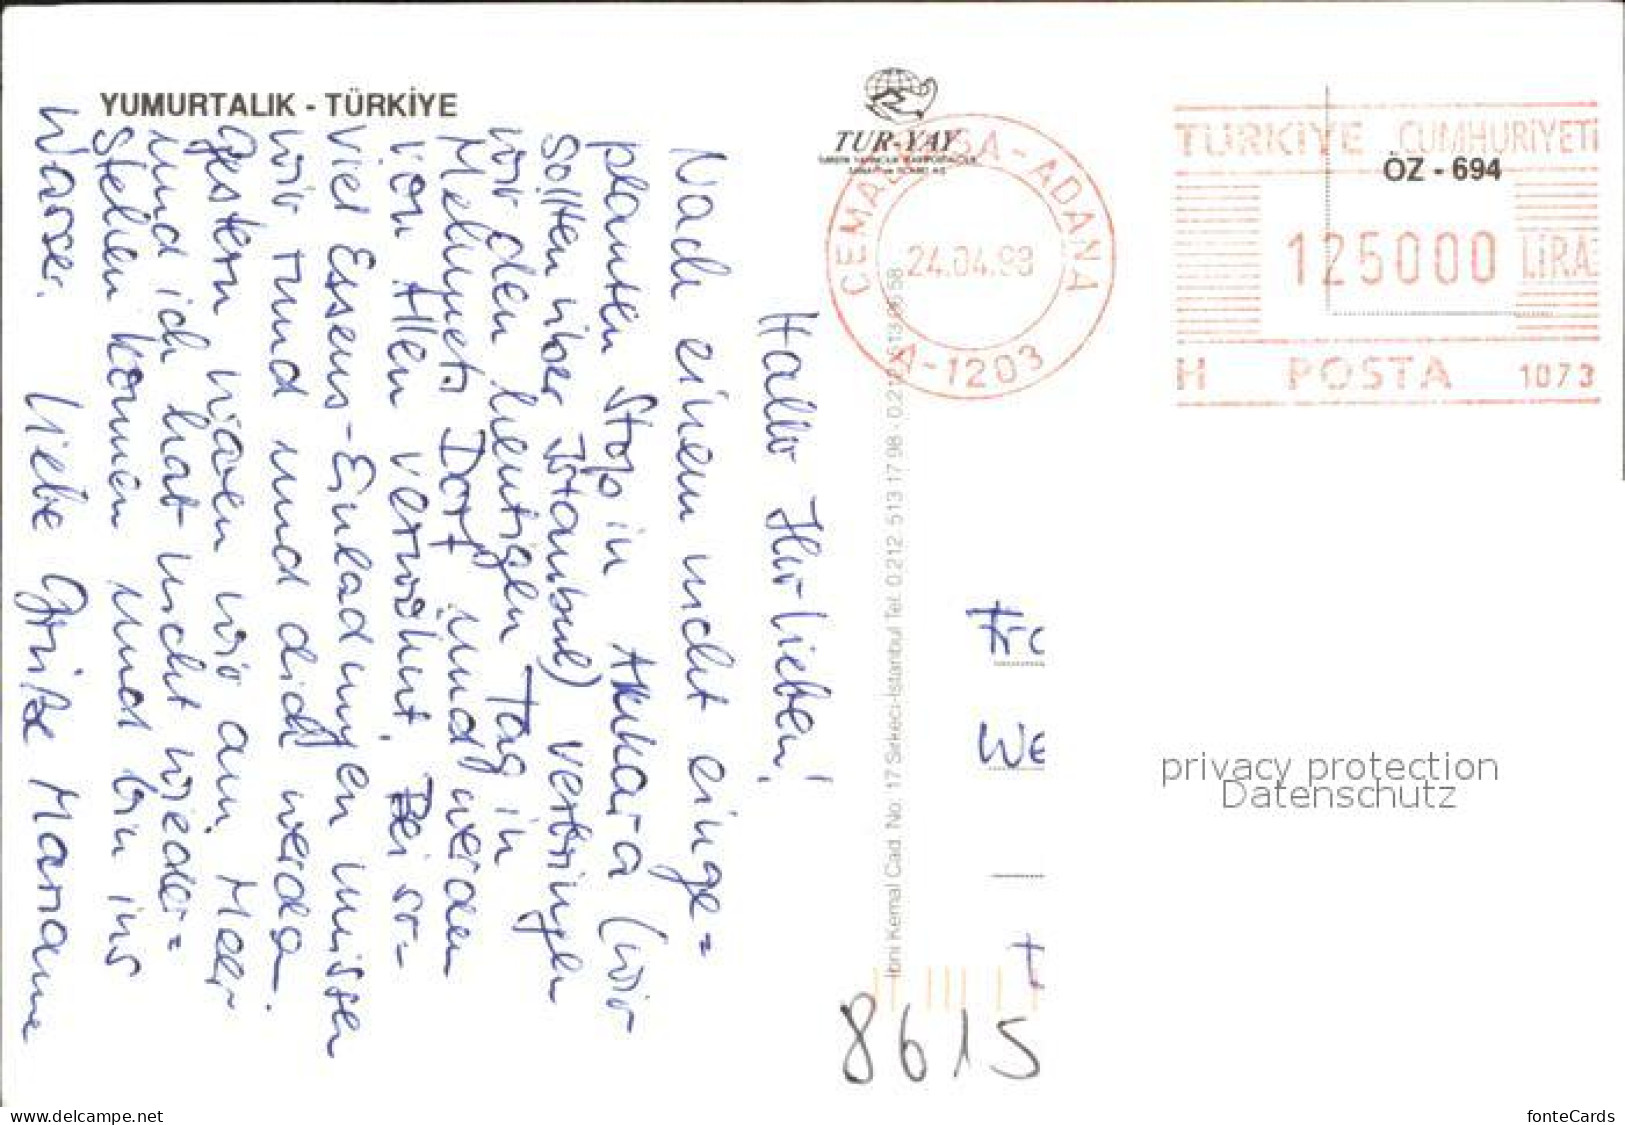 YUMURTALIK - TÜRKİYE
TUR-YAY
CEMALPAŞA-ADANA
24.04.98
A-1203
TÜRKİYE CUMHURİYETİ
ÖZ - 694
125000 LİRA
H POSTA 1073
Hallo Ihr Lieben!
Nach einem nicht einge=
planten Stop in Ankara (wir
sollten über Istanbul) verbringen
wir den heutigen Tag in
Mehmets Dorf und werden
von Allen verwöhnt. Bei so-
viel Essens-Einladungen müssen
wir rund und dick werden.
Gestern waren wir am Meer
und ich hat nicht wieder=
stehen können und bin ins
Wasser. Liebe Grüße Marianne
İbni Kemal Cad. No: 17 Sirkeci-İstanbul Tel: 0.212 513 17 98 - 0.212 513 06 58
We
8615
privacy protection
Datenschutz
www.delcampe.net
fonteCards